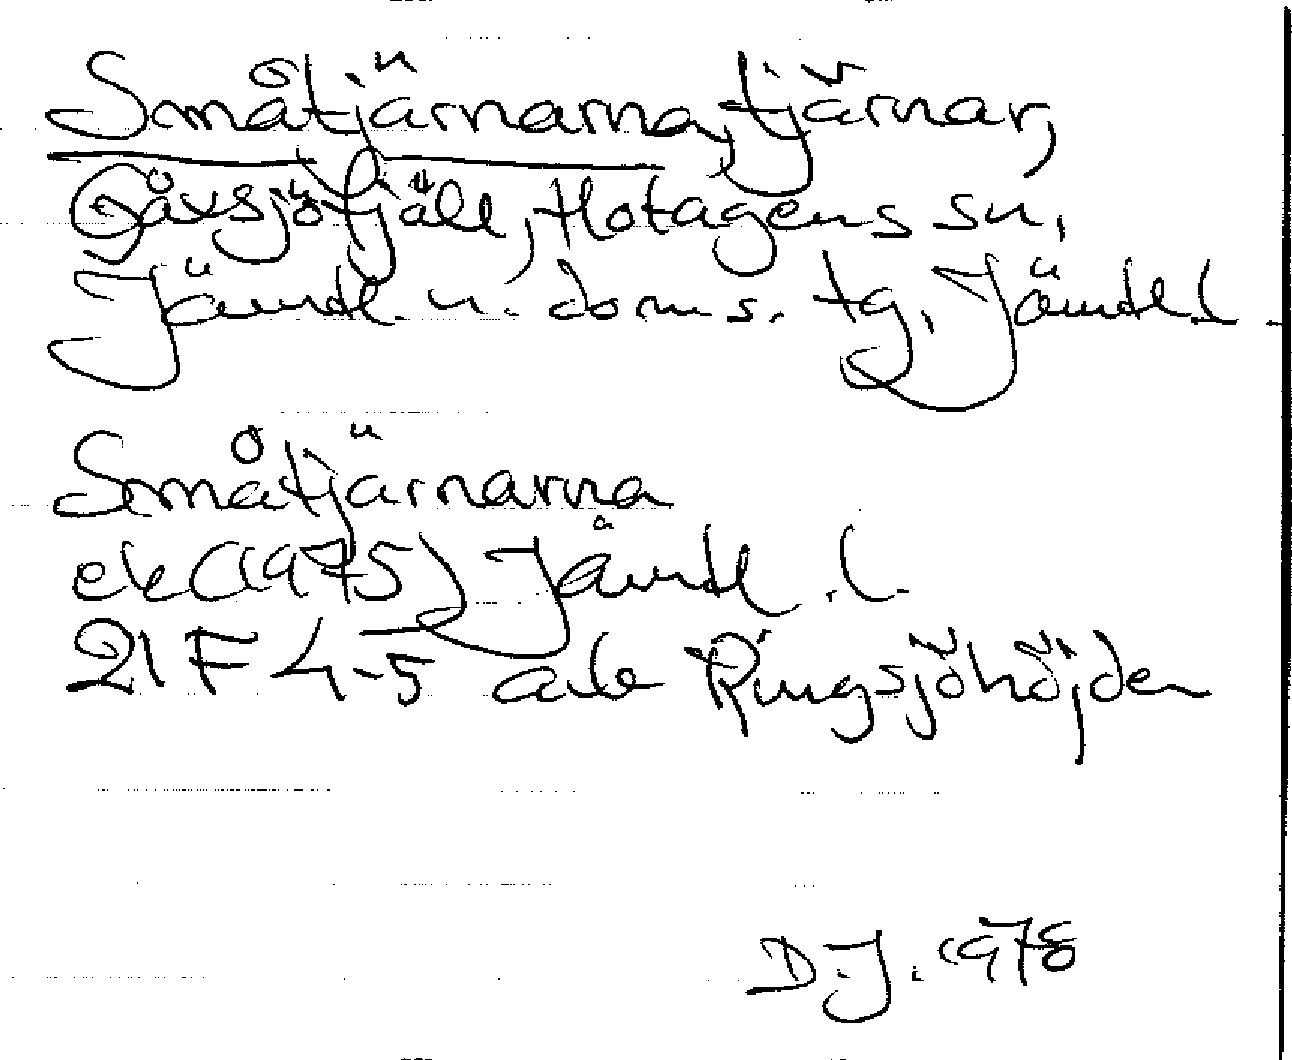 Småtjärnarna, tjärnar,
Gåxsjöfjäll, Hotagens sn,
Jämtl. n. doms. tg, Jämtl. l.
Småtjärnarna
ek (1975) Jämtl. l.
21 F 4-5 ale Ringsjöhöjden
D.J. 1978